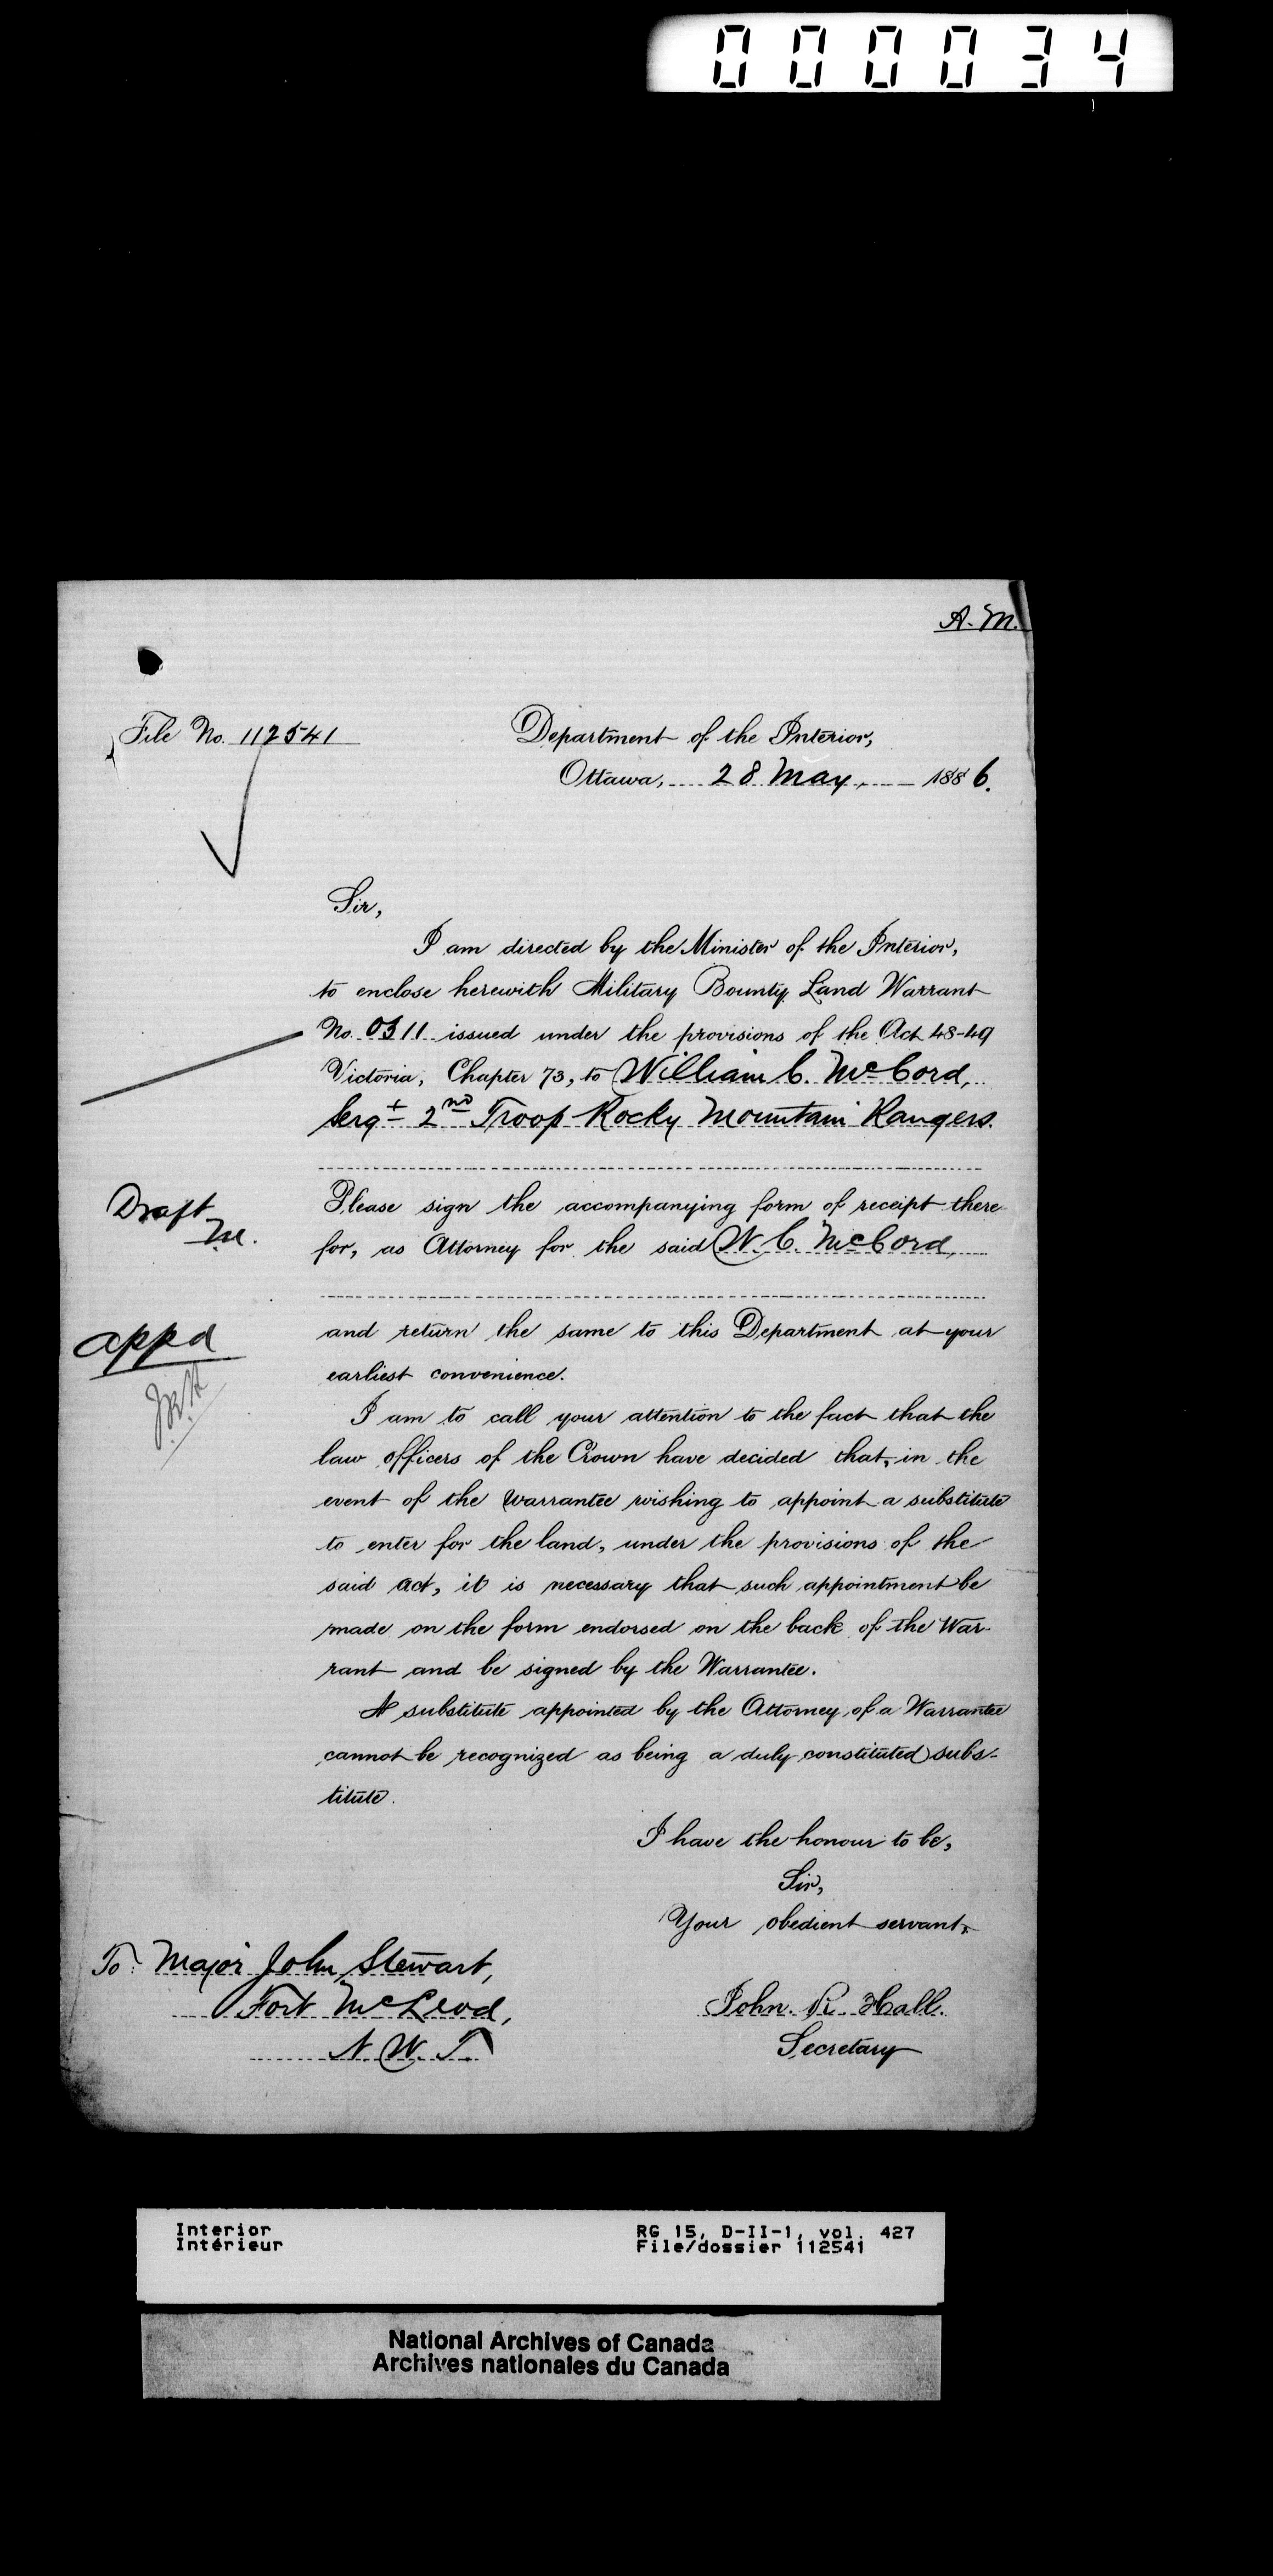 000034
A. M.
File No. 112541
Department of the Interior,
Ottawa, 28 May, 1886.
Sir,
I am directed by the Minister of the Interior,
to enclose herewith Military Bounty Land Warrant
No. 0311 issued under the provisions of the Act 48-49
Victoria, Chapter 73, to William C. McCord,
Sergt 2nd Troop Rocky Mountain Rangers.
Draft
M.
Please sign the accompanying form of receipt there-
for, as Attorney for the said W. C. McCord,
appd
JRH
and return the same to this Department at your
earliest convenience.
I am to call your attention to the fact that the
law officers of the Crown have decided that, in the
event of the Warrantee wishing to appoint a substitute
to enter for the land, under the provisions of the
said Act, it is necessary that such appointment be
made on the form endorsed on the back of the War-
rant and be signed by the Warrantee.
A substitute appointed by the Attorney of a Warrantee
cannot be recognized as being a duly constituted subs-
titute.
I have the honour to be,
Sir,
Your obedient servant,
To Major John Stewart,
Fort McLeod,
N. W. T.
John R. Hall.
Secretary
Interior
Intérieur
RG 15, D-II-1, vol. 427
File/dossier 112541
National Archives of Canada
Archives nationales du Canada